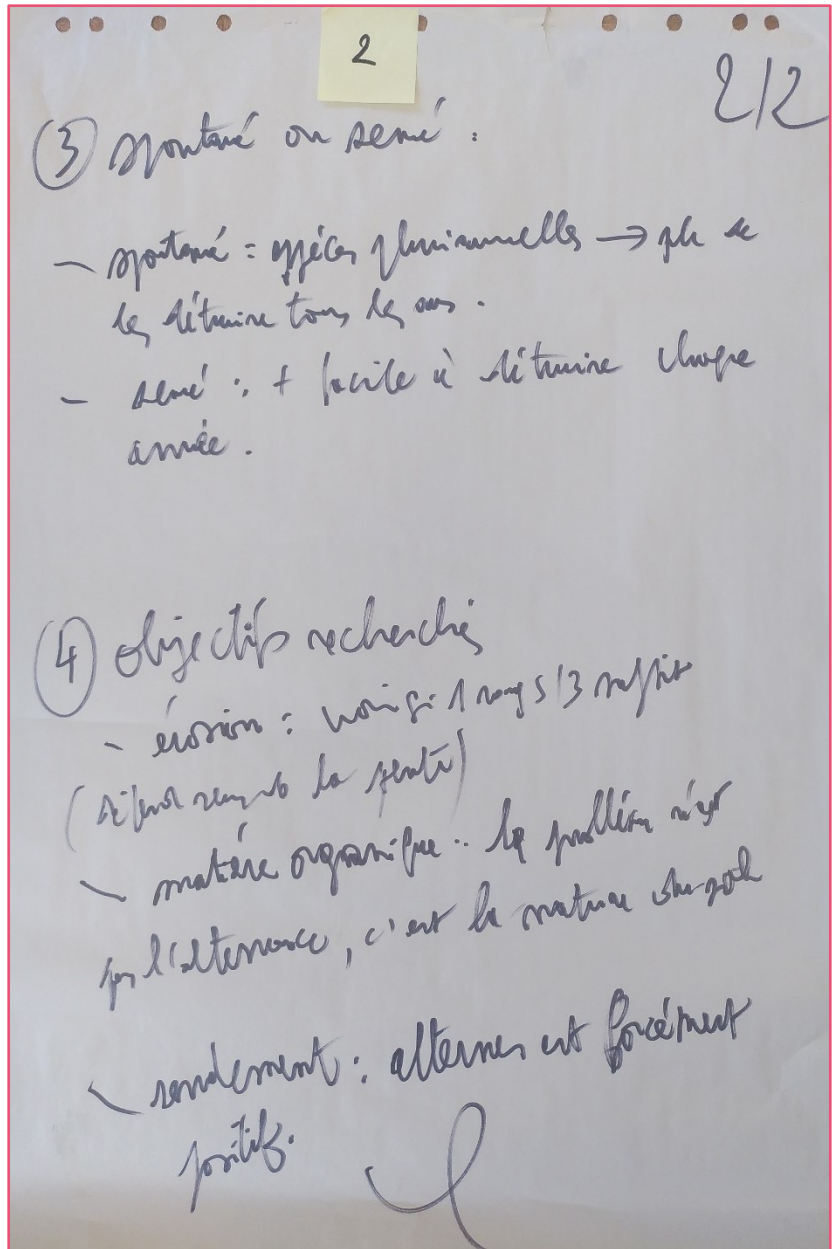 2
2/2
③ spontané ou semé :
- spontané : espèces pluriannuelles → pb de
les détruire tous les ans.
- semé : + facile à détruire chaque
année.
④ objectifs recherchés
- érosion : 1 rang s/3 suffit
(la pente)
- matière organique : le problème n'est
pas l'alternance, c'est la nature du sol
- rendement : alterner est forcément
positif.